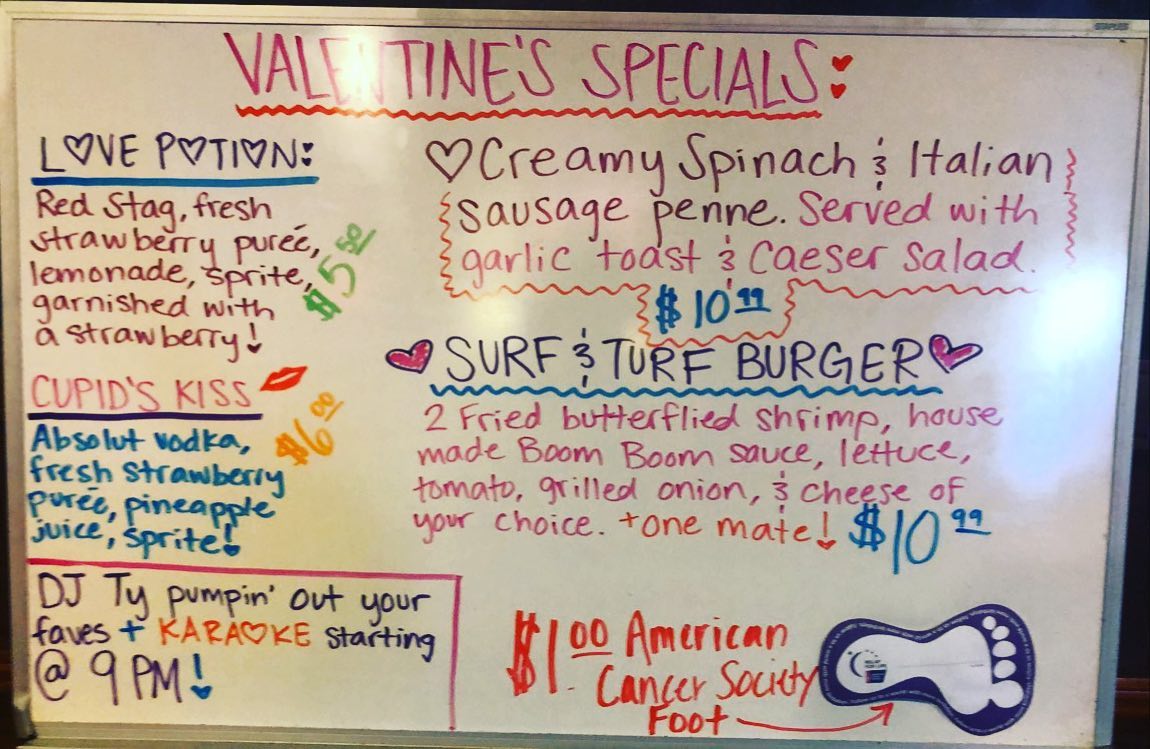 VALENTINE'S SPECIALS:
LOVE POTION:
Red Stag, fresh
strawberry pureé,
lemonade, sprite,
garnished with
a strawberry!
$5 50
CUPID'S KISS
$6 50
Absolut vodka,
fresh strawberry
pureé, pineapple
juice, sprite!
DJ Ty pumpin' out your
faves + KARAOKE starting
@ 9 PM!
Creamy Spinach & Italian
sausage penne. Served with
garlic toast & Caeser salad.
$10.99
SURF & TURF BURGER
2 Fried butterflied shrimp, house
made Boom Boom sauce, lettuce,
tomato, grilled onion, & cheese of
your choice. + one mate! $10 99
$1.00 American
Cancer Society
Foot
RELAY
FOR LIFE